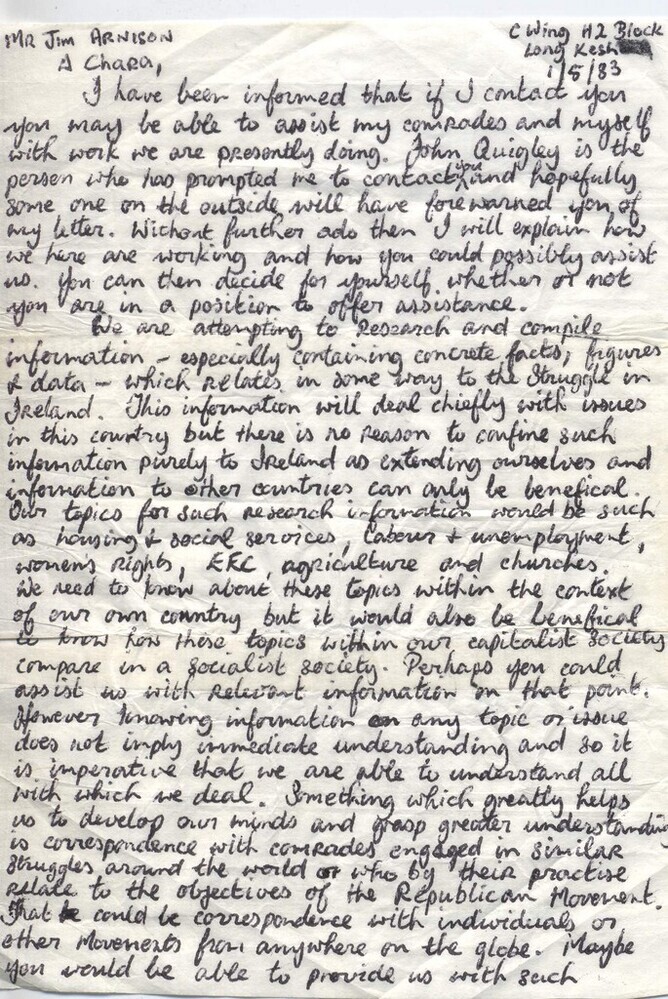 Mr Jim Arnison
C Wing H2 Block
Long Kesh
1/5/83
A Chara,
I have been informed that if I contact you
you may be able to assist my comrades and myself
with work we are presently doing. John Quigley is the
person who has prompted me to contact you and hopefully
some one on the outside will have forewarned you of
my letter. Without further ado then I will explain how
we here are working and how you could possibly assist
us. You can then decide for yourself whether or not
you are in a position to offer assistance.
We are attempting to research and compile
information - especially containing concrete facts, figures
& data - which relates in some way to the Struggle in
Ireland. This information will deal chiefly with issues
in this country but there is no reason to confine such
information purely to Ireland as extending ourselves and
information to other countries can only be benefical.
Our topics for such research information would be such
as housing & social services, labour & unemployment,
women's rights, EEC, agriculture and churches.
We need to know about these topics within the context
of our own country but it would also be benefical
to know how these topics within our capitalist society
compare in a socialist society. Perhaps you could
assist us with relevant information on that point.
However knowing information on any topic or issue
does not imply immediate understanding and so it
is imperative that we are able to understand all
with which we deal. Something which greatly helps
us to develop our minds and grasp greater understanding
is correspondence with comrades engaged in similar
struggles around the world or who by their practise
relate to the objectives of the Republican Movement.
That could be correspondence with individuals or
other Movements from anywhere on the globe. Maybe
you would be able to provide us with such